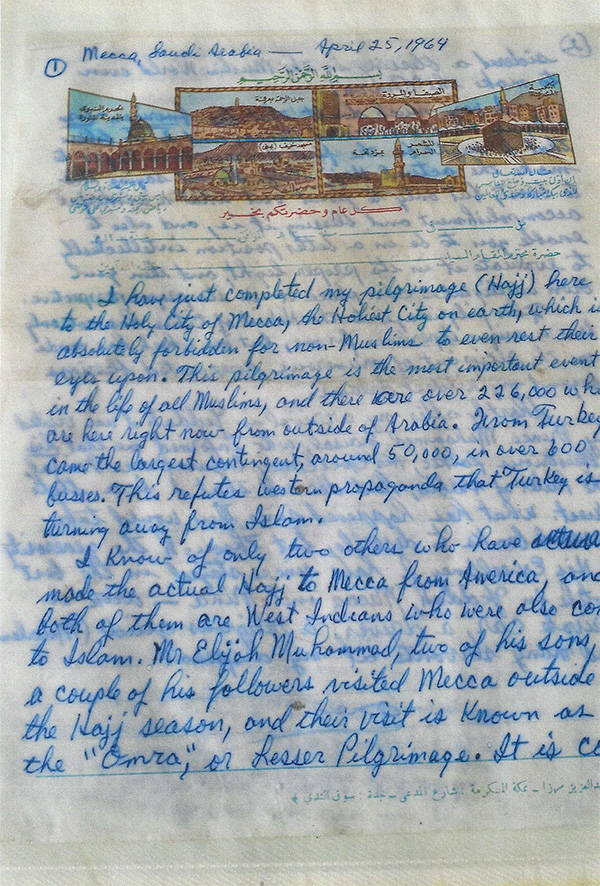 ① Mecca, Saudi Arabia — April 25, 1964
بسم الله الرحمن الرحيم
الحرم النبوى بالمدينة المنورة
جبل الرحمة بعرفة
الصفا والمروة
مسجد خيف (بمنى)
المشعر الحرام مزدلفة
كل عام وحضرتكم بخير
I have just completed my pilgrimage (Hajj) here
to the Holy City of Mecca, the Holiest City on earth, which is
absolutely forbidden for non-Muslims to even rest their
eyes upon. This pilgrimage is the most important event
in the life of all Muslims, and there were over 226,000 who
are here right now from outside of Arabia. From Turkey
came the largest contingent, around 50,000, in over 600
busses. This refutes western propaganda that Turkey is
turning away from Islam.
I know of only two others who have actua
made the actual Hajj to Mecca from America, and
both of them are West Indians who were also con
to Islam. Mr Elijah Muhammad, two of his sons,
a couple of his followers visited Mecca outside
the Hajj season, and their visit is known as
the "Omra," or Lesser Pilgrimage. It is co
مكة المكرمة : شارع المدعى - جدة : سوق الندى